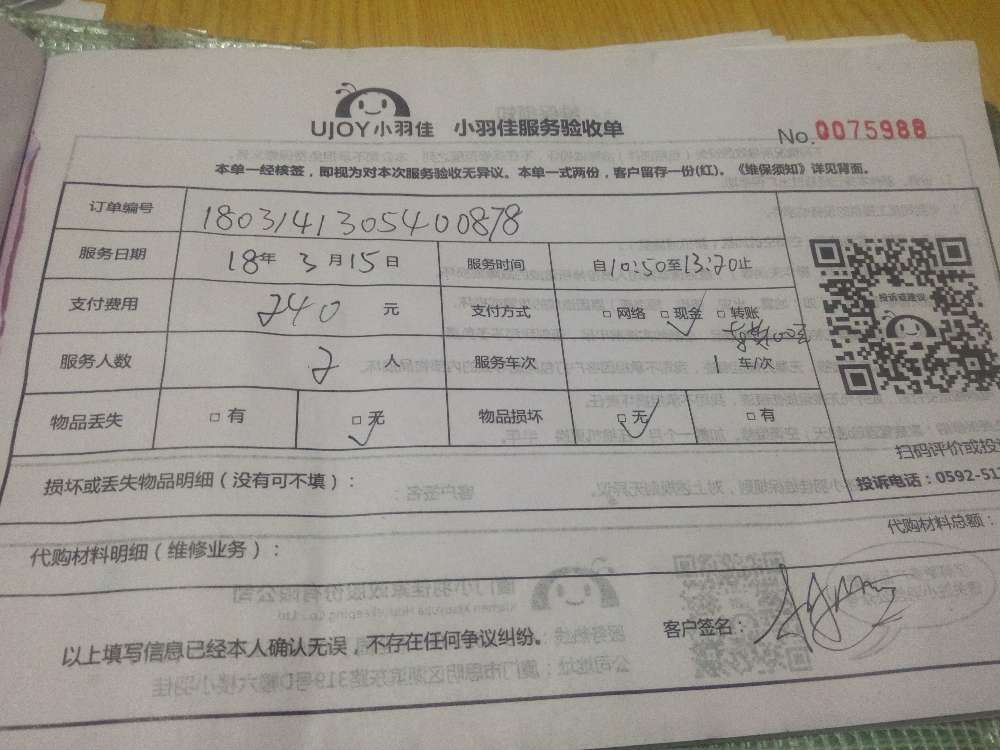 UJOY小羽佳 小羽佳服务验收单 No.0075988
本单一经核签，即视为对本次服务验收无异议。本单一式两份，客户留存一份(红)。《维保须知》详见背面。
订单编号 1803141305400878
服务日期 18年 3月15日 服务时间 自10:50至13:20止
支付费用 240 元 支付方式 □网络 □现金 □转账
服务人数 2 人 服务车次 1 车/次
物品丢失 □有 □无 物品损坏 □无 □有
投诉或建议
扫码评价或投
损坏或丢失物品明细（没有可不填）：
投诉电话：0592-51
代购材料明细（维修业务）： 代购材料总额：
以上填写信息已经本人确认无误，不存在任何争议纠纷。 客户签名：